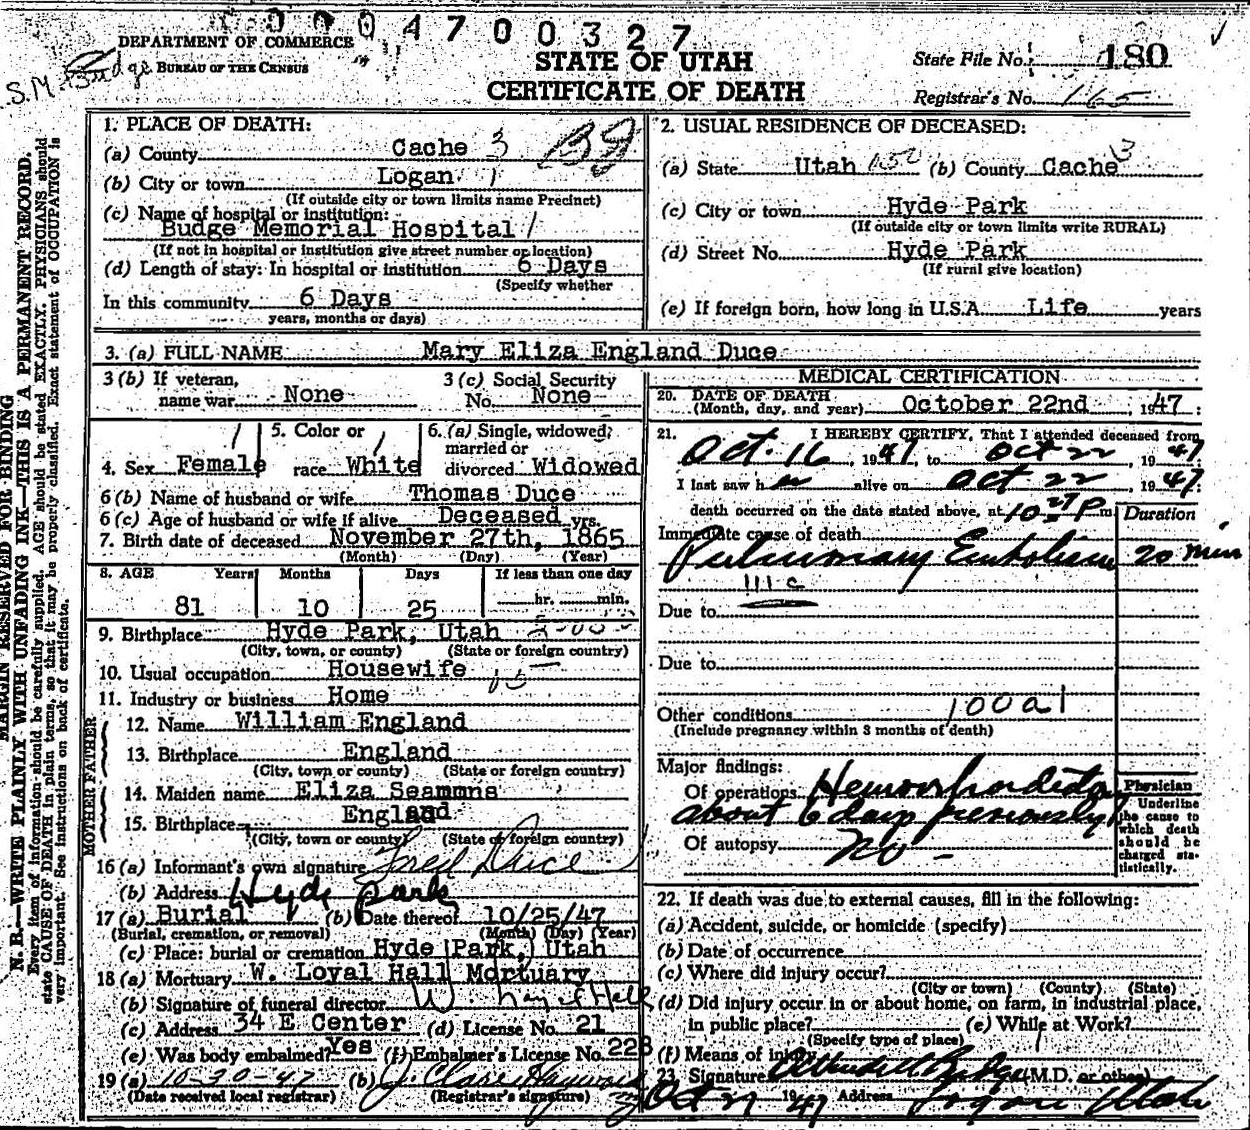 0004700327
DEPARTMENT OF COMMERCE
BUREAU OF THE CENSUS
S.M. Budge
STATE OF UTAH
CERTIFICATE OF DEATH
State File No. 180
Registrar's No. 165
MARGIN RESERVED FOR BINDING
N. B.—WRITE PLAINLY WITH UNFADING INK—THIS IS A PERMANENT RECORD.
Every item of information should be carefully supplied. AGE should be stated EXACTLY. PHYSICIANS should
state CAUSE OF DEATH in plain terms, so that it may be properly classified. Exact statement of OCCUPATION is
very important. See instructions on back of certificate.
1. PLACE OF DEATH:
(a) County Cache 3
(b) City or town Logan 1
(If outside city or town limits name Precinct)
(c) Name of hospital or institution:
Budge Memorial Hospital 1
(If not in hospital or institution give street number or location)
(d) Length of stay: In hospital or institution 6 Days
(Specify whether
In this community 6 Days
years, months or days)
2. USUAL RESIDENCE OF DECEASED:
(a) State Utah (b) County Cache 3
(c) City or town Hyde Park
(If outside city or town limits write RURAL)
(d) Street No. Hyde Park
(If rural give location)
(e) If foreign born, how long in U.S.A. Life years
3. (a) FULL NAME Mary Eliza England Duce
3 (b) If veteran, name war None
3 (c) Social Security No. None
4. Sex Female
5. Color or race White
6. (a) Single, widowed, married or divorced Widowed
6 (b) Name of husband or wife Thomas Duce
6 (c) Age of husband or wife if alive Deceased yrs.
7. Birth date of deceased November 27th, 1865
(Month) (Day) (Year)
8. AGE Years Months Days If less than one day
81 10 25 hr. min.
9. Birthplace Hyde Park, Utah
(City, town, or county) (State or foreign country)
10. Usual occupation Housewife
11. Industry or business Home
FATHER
12. Name William England
13. Birthplace England
(City, town or county) (State or foreign country)
MOTHER
14. Maiden name Eliza Seamons
15. Birthplace England
(City, town or county) (State or foreign country)
16 (a) Informant's own signature Fred Duce
(b) Address Hyde Park
17 (a) Burial (b) Date thereof 10/25/47
(Burial, cremation, or removal) (Month) (Day) (Year)
(c) Place: burial or cremation Hyde Park, Utah
18 (a) Mortuary W. Loyal Hall Mortuary
(b) Signature of funeral director W. Loyal Hall
(c) Address 34 E Center (d) License No. 21
(e) Was body embalmed? Yes (f) Embalmer's License No. 228
19 (a) 10-30-47 (b) J. Clare Hayward
(Date received local registrar) (Registrar's signature)
MEDICAL CERTIFICATION
20. DATE OF DEATH
(Month, day, and year) October 22nd, 1947
21. I HEREBY CERTIFY, That I attended deceased from
Oct. 16, 1947, to Oct 22, 1947
I last saw her alive on Oct 22, 1947
death occurred on the date stated above, at 10 27 P m
Duration
Immediate cause of death
Pulmonary Embolism 20 min
111c
Due to
Due to
Other conditions 100a1
(Include pregnancy within 3 months of death)
Major findings:
Of operations Hemorrhoidectomy
about 6 days previously
Of autopsy No
Physician
Underline
the cause to
which death
should be
charged sta-
tistically.
22. If death was due to external causes, fill in the following:
(a) Accident, suicide, or homicide (specify)
(b) Date of occurrence
(c) Where did injury occur?
(City or town) (County) (State)
(d) Did injury occur in or about home, on farm, in industrial place,
in public place? (e) While at Work?
(Specify type of place)
(f) Means of injury
23. Signature Budge (M.D. or other)
Oct 29 1947 Address Logan Utah